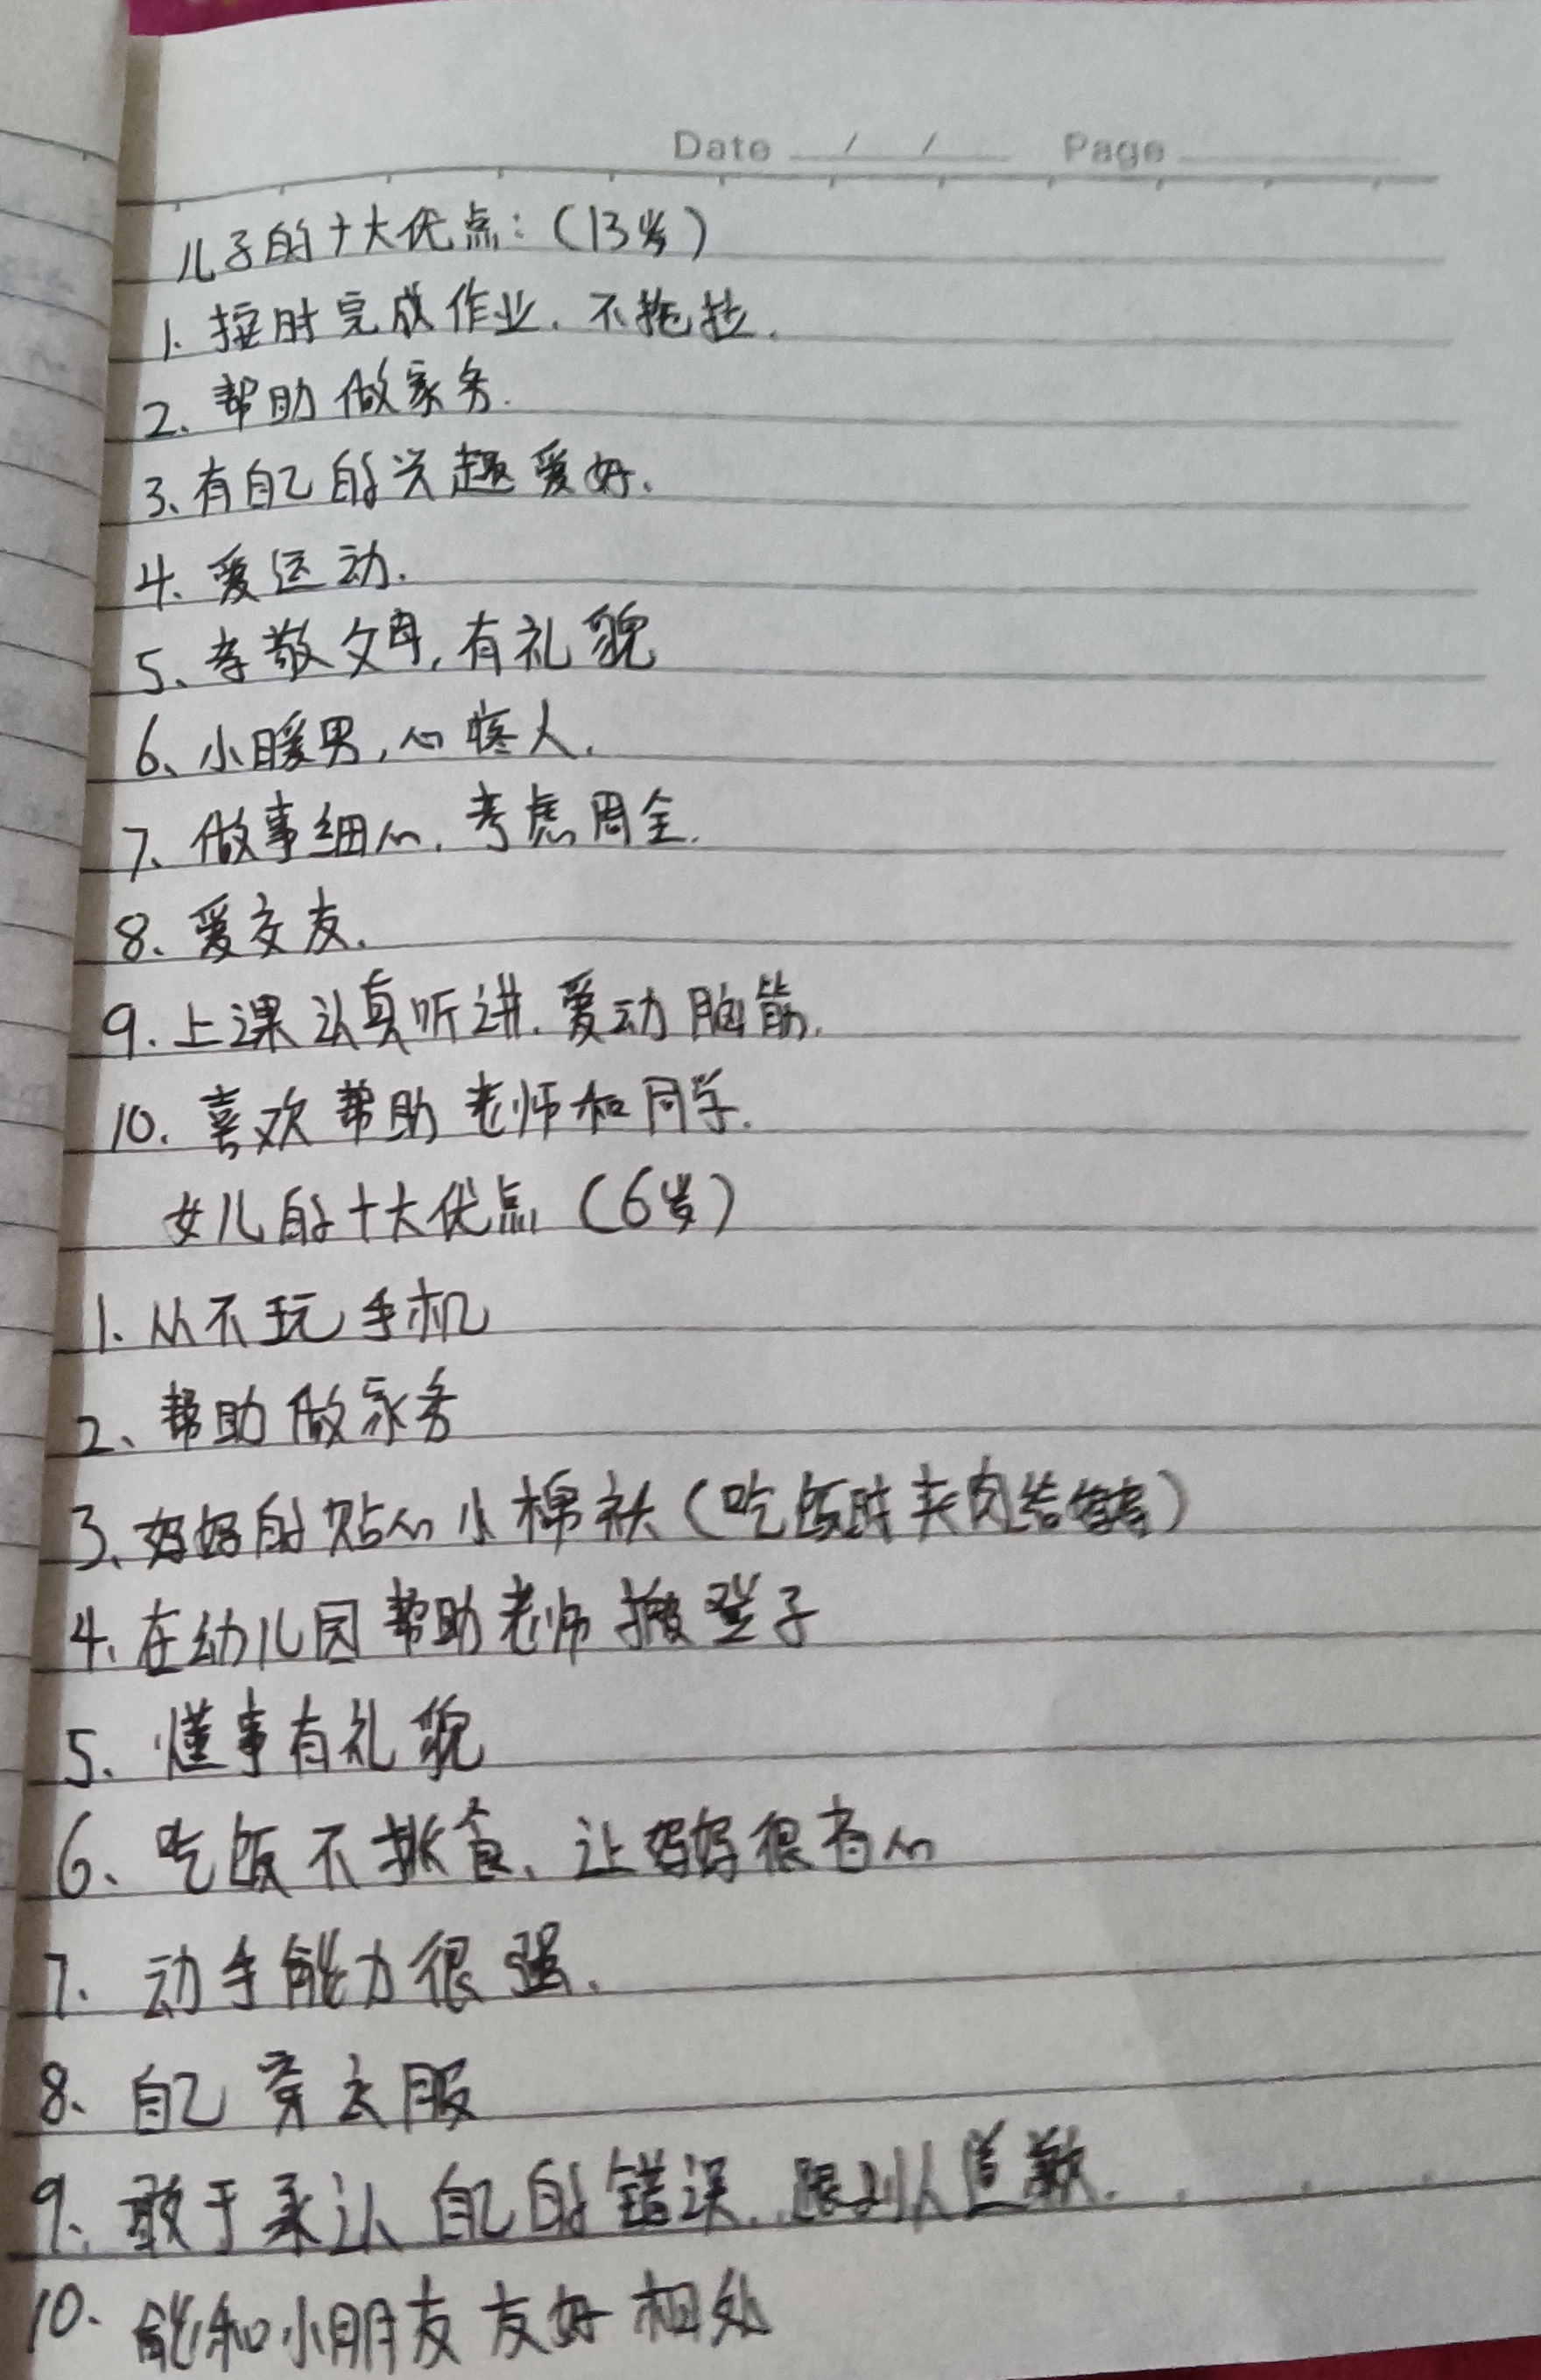 Date / / Page
儿子的十大优点:(13岁)
1. 按时完成作业. 不拖拉.
2. 帮助做家务.
3、有自己的兴趣爱好.
4. 爱运动.
5、孝敬父母, 有礼貌
6、小暖男, 心疼人.
7、做事细心, 考虑周全.
8. 爱交友.
9. 上课认真听讲. 爱动脑筋.
10. 喜欢帮助老师和同学.
女儿的十大优点 (6岁)
1. 从不玩手机
2、帮助做家务
3、妈妈的贴心小棉袄 (吃饭时夹肉给妈妈)
4. 在幼儿园帮助老师搬登子
5、懂事有礼貌
6、吃饭不挑食、让妈妈很省心
7. 动手能力很强.
8、自己穿衣服
9、敢于承认自己的错误. 跟别人道歉.
10. 能和小朋友友好相处